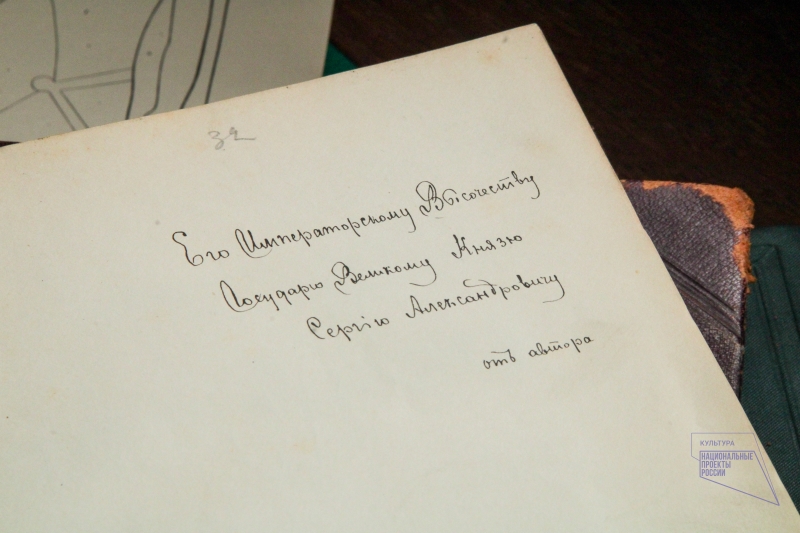 32
Его Императорскому Высочеству
Государю Великому Князю
Сергію Александровичу
отъ автора
КУЛЬТУРА
НАЦИОНАЛЬНЫЕ
ПРОЕКТЫ
РОССИИ